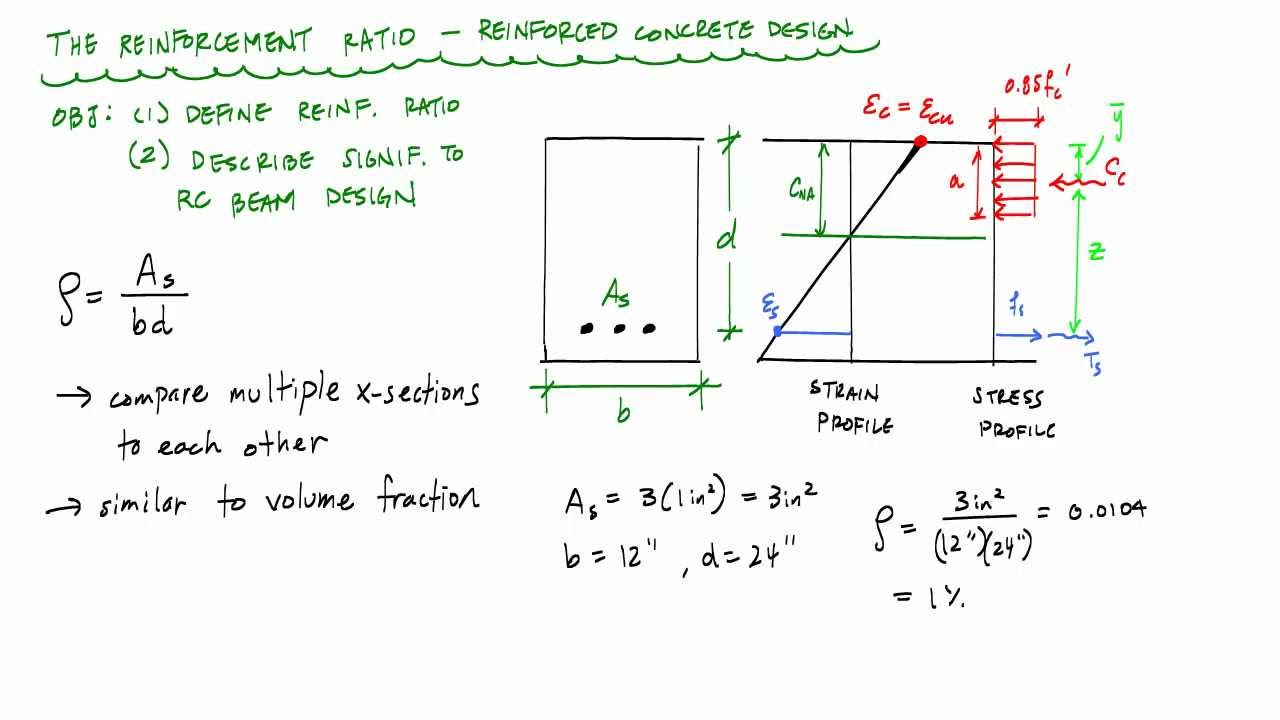 THE REINFORCEMENT RATIO – REINFORCED CONCRETE DESIGN
OBJ: (1) DEFINE REINF. RATIO
(2) DESCRIBE SIGNIF. TO
RC BEAM DESIGN
ρ = As / bd
→ compare multiple x-sections
to each other
→ similar to volume fraction
As
d
b
εc = εcu
CNA
εs
STRAIN
PROFILE
0.85fc'
a
ȳ
Cc
z
fs
Ts
STRESS
PROFILE
As = 3(1in²) = 3in²
b = 12", d = 24"
ρ = 3in² / (12")(24") = 0.0104
= 1%